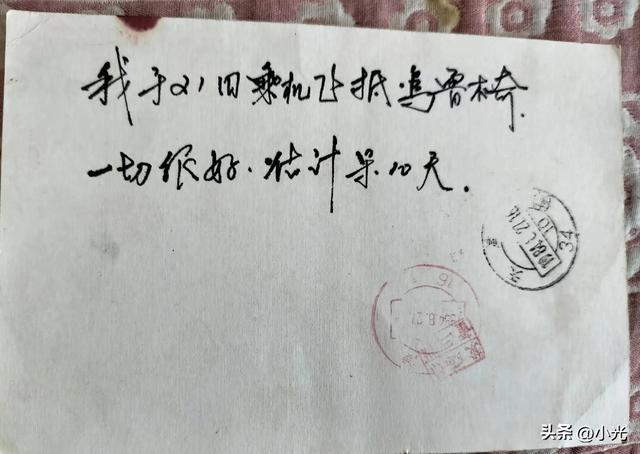 我于21日乘机飞抵乌鲁木齐.
一切很好.估计呆10天.
34
10
16
头条 @小光